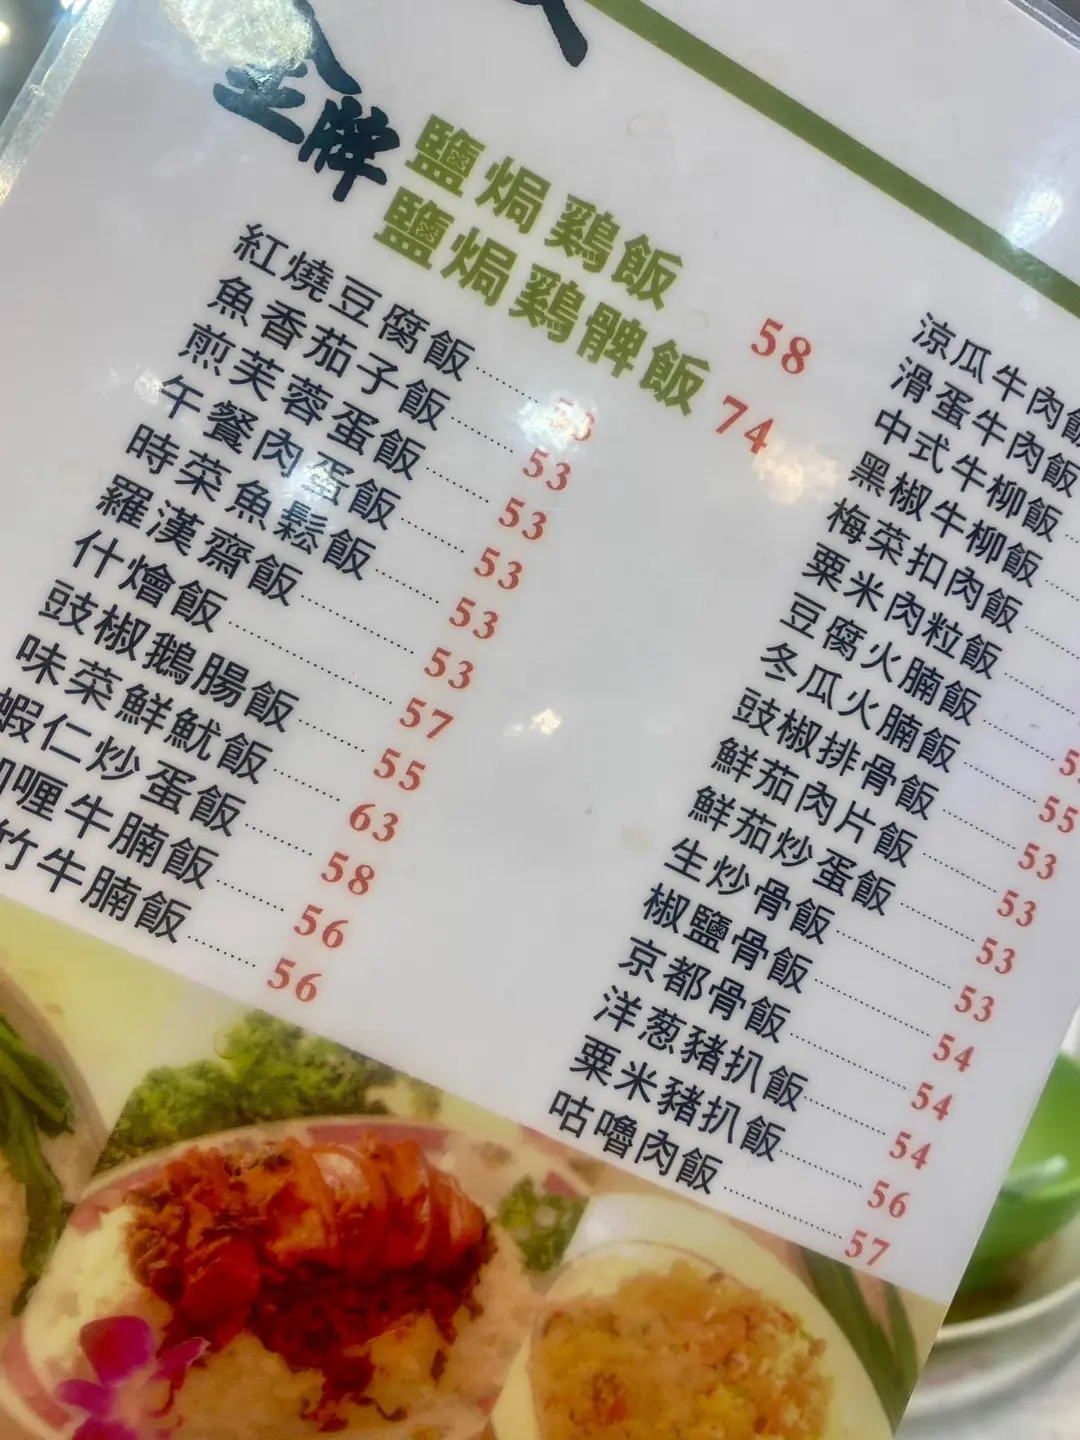 金牌
鹽焗鷄飯 58
鹽焗鷄髀飯 74
紅燒豆腐飯
魚香茄子飯 53
煎芙蓉蛋飯 53
午餐肉蛋飯 53
時菜魚鬆飯 53
羅漢齋飯 53
什燴飯 57
豉椒鵝腸飯 55
味菜鮮魷飯 63
蝦仁炒蛋飯 58
喱牛腩飯 56
竹牛腩飯 56
涼瓜牛肉飯
滑蛋牛肉飯
中式牛柳飯
黑椒牛柳飯
梅菜扣肉飯
粟米肉粒飯
豆腐火腩飯
冬瓜火腩飯 55
豉椒排骨飯 53
鮮茄肉片飯 53
鮮茄炒蛋飯 53
生炒骨飯 53
椒鹽骨飯 54
京都骨飯 54
洋葱豬扒飯 54
粟米豬扒飯 56
咕嚕肉飯 57